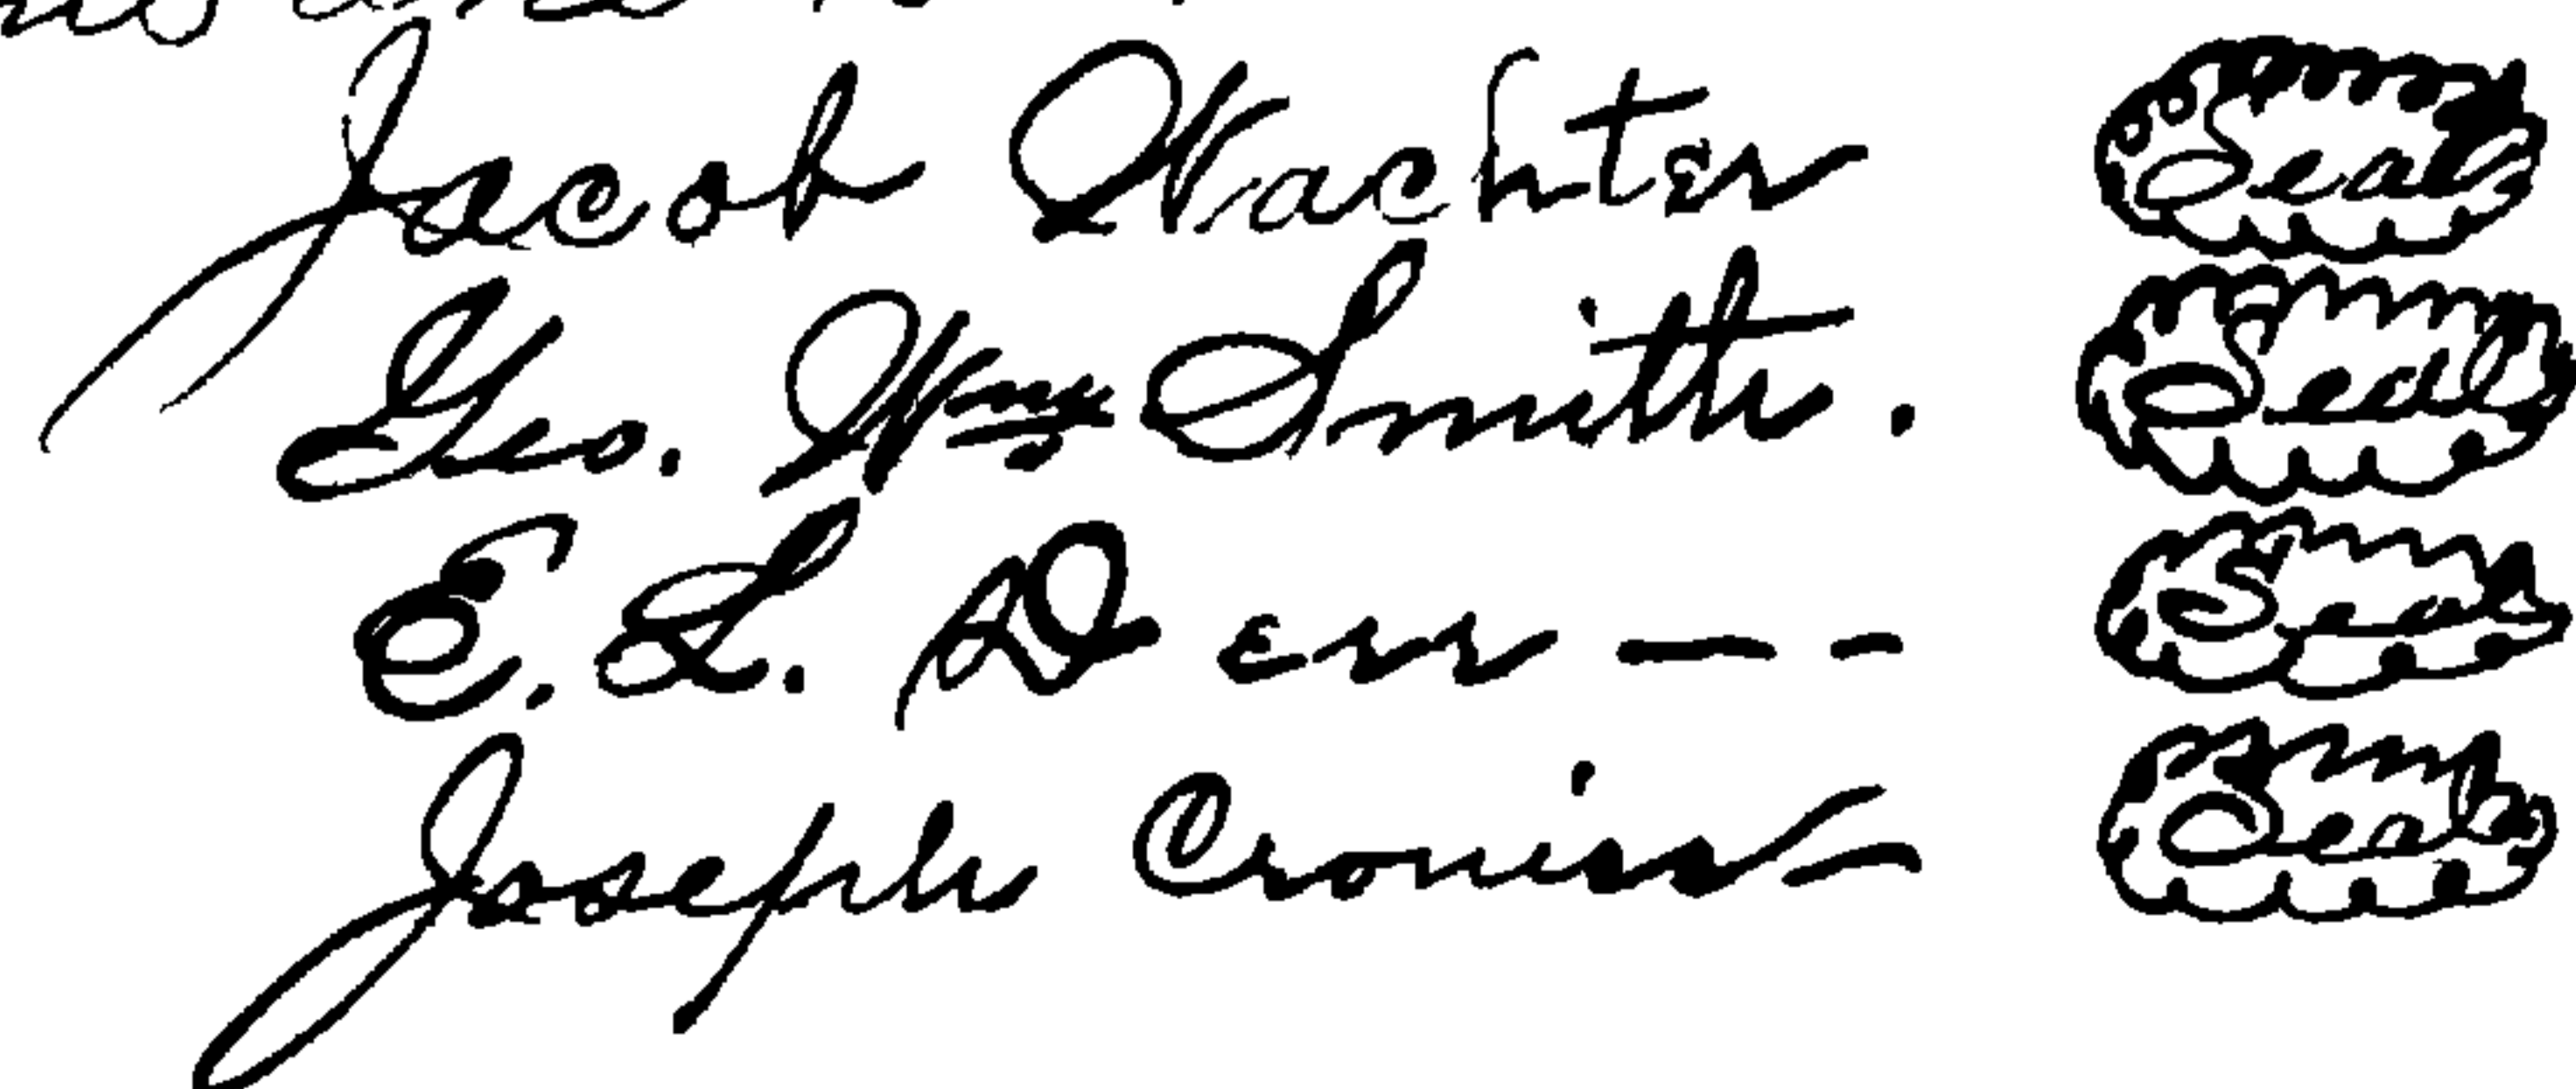 Jacob Wachter Seal
Geo. Wm Smith. Seal
E. L. Derr — - Seal
Joseph Cronise — Seal